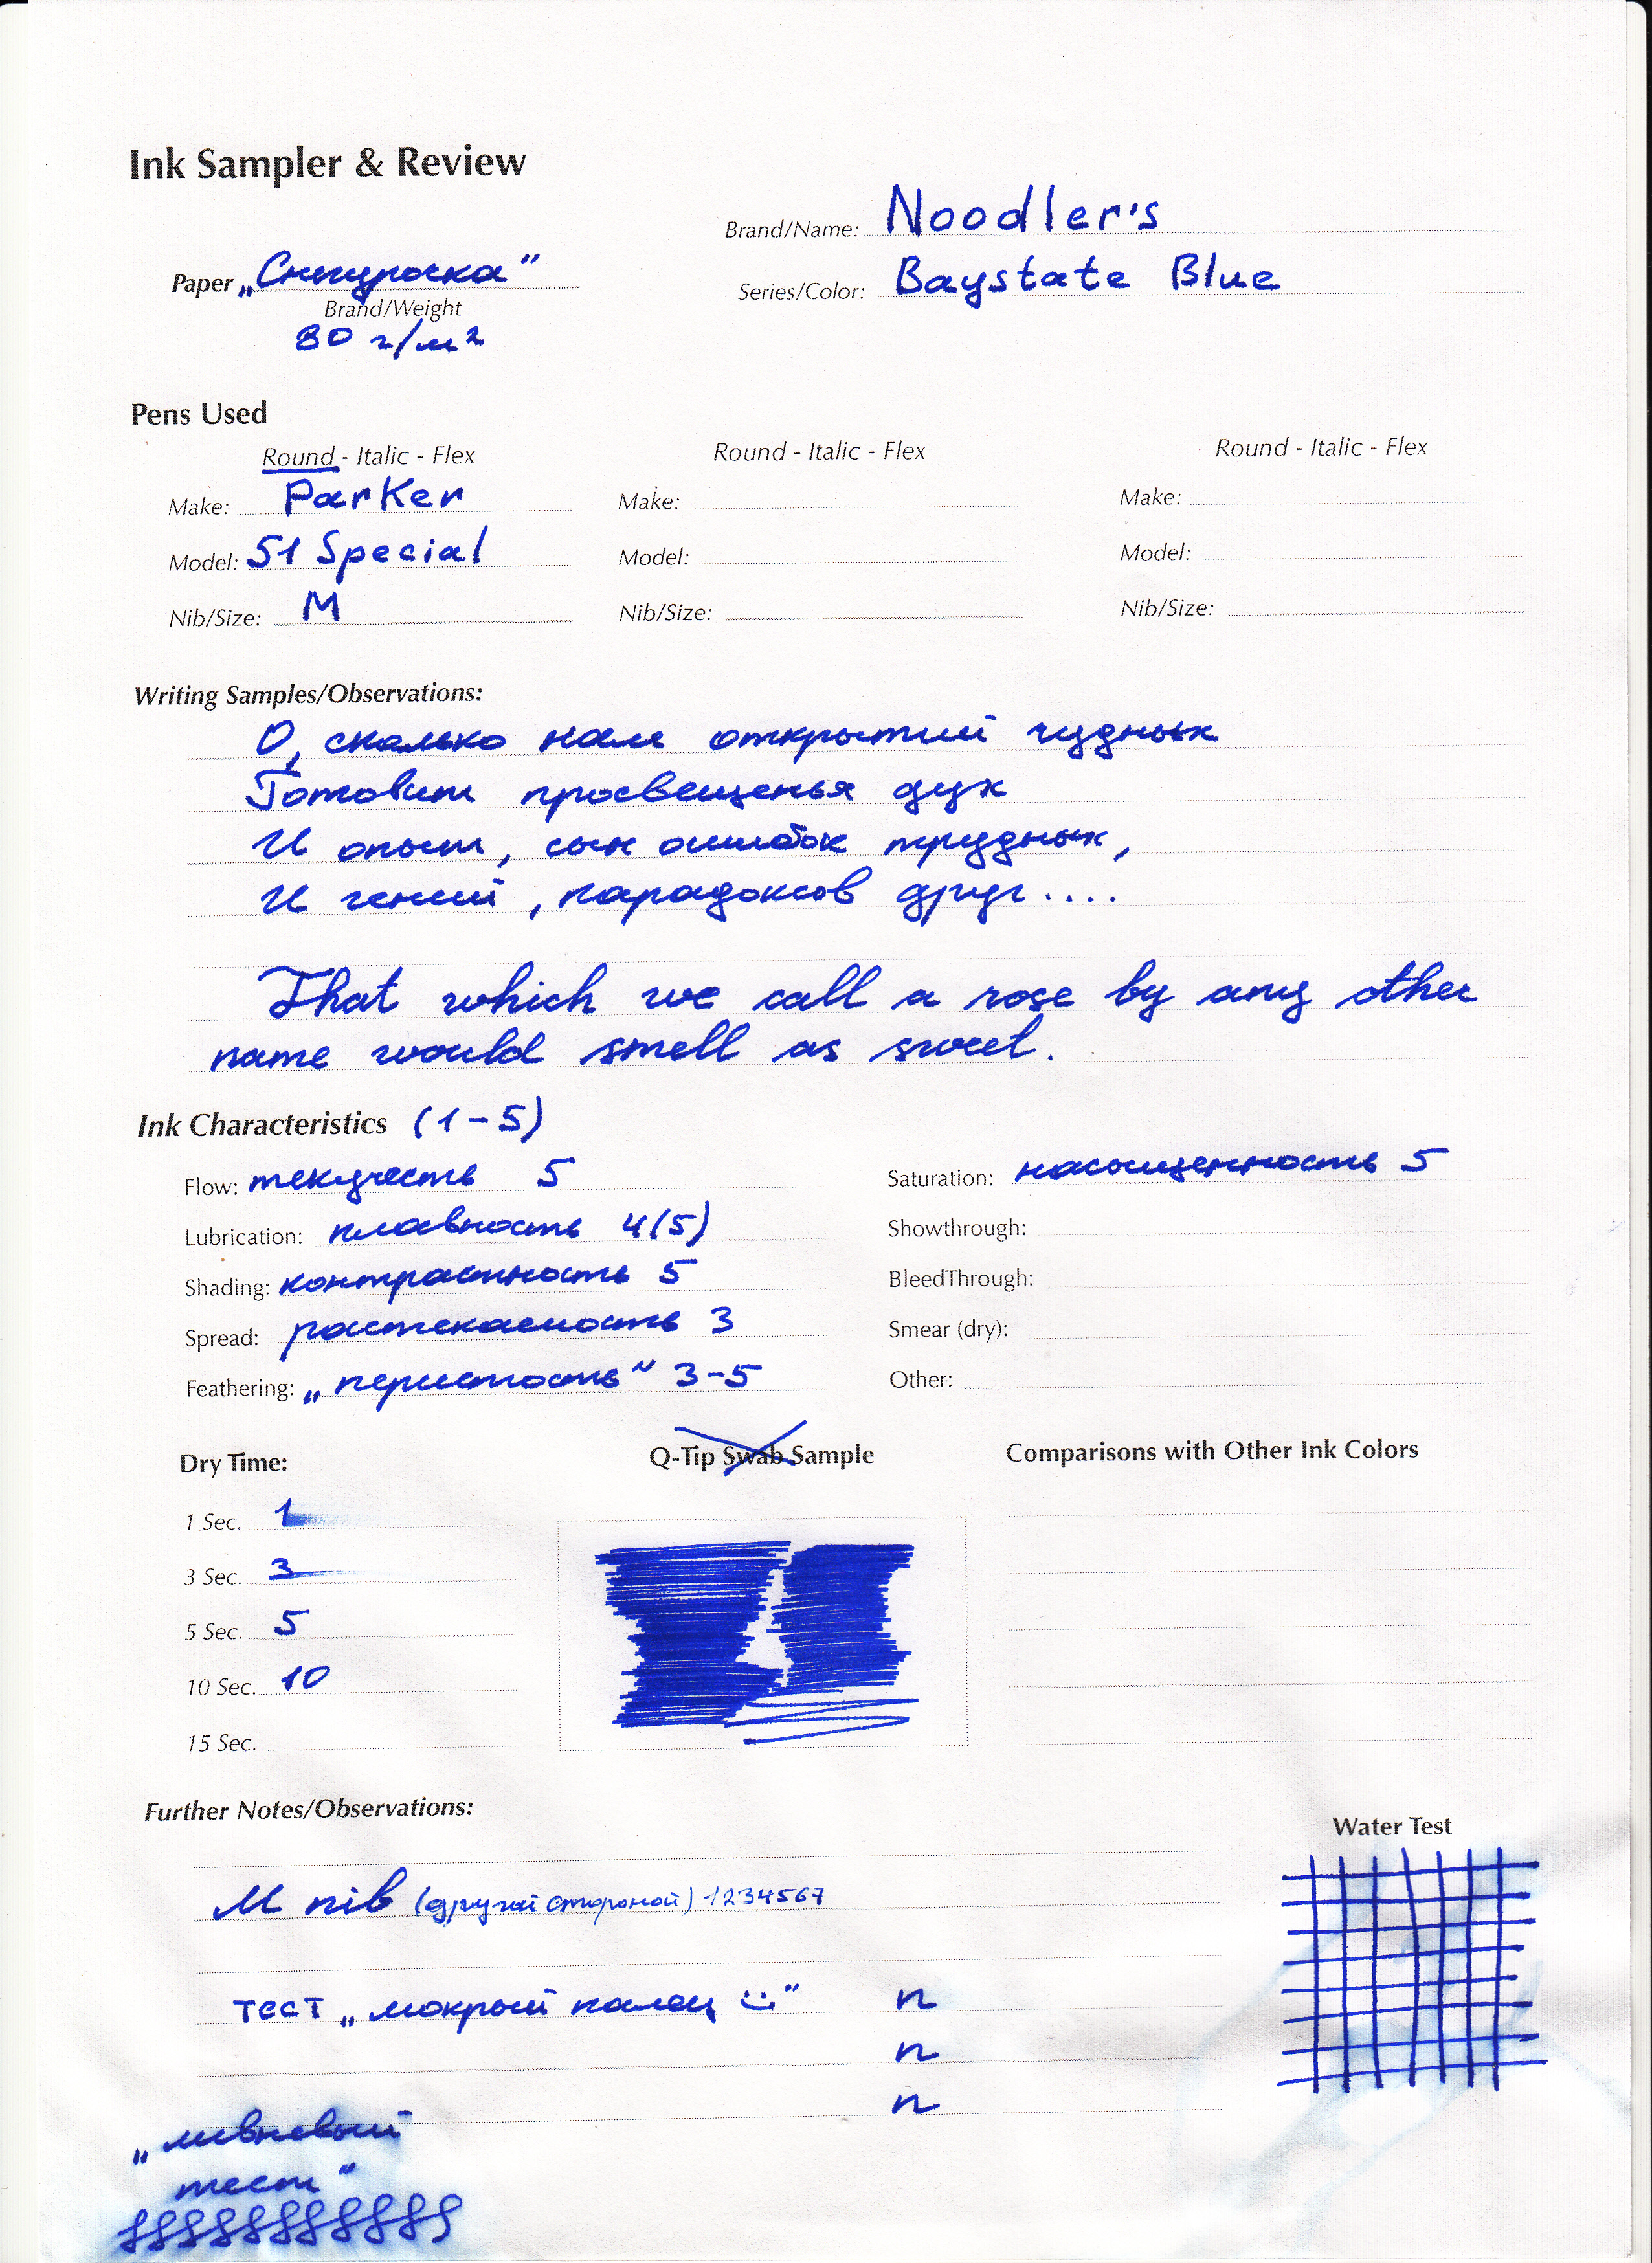 Ink Sampler & Review
Brand/Name: Noodler's
Paper „Снегурочка"
Series/Color: Baystate Blue
Brand/Weight
80 г/м²
Pens Used
Round - Italic - Flex
Round - Italic - Flex
Round - Italic - Flex
Make: Parker
Make:
Make:
Model: 51 Special
Model:
Model:
Nib/Size: M
Nib/Size:
Nib/Size:
Writing Samples/Observations:
О, сколько нам открытий чудных
Готовит просвещенья дух
И опыт, сын ошибок трудных,
И гений, парадоксов друг....
That which we call a rose by any other
name would smell as sweet.
Ink Characteristics (1-5)
Flow: текучесть 5
Saturation: насыщенность 5
Lubrication: плавность 4(5)
Showthrough:
Shading: контрастность 5
BleedThrough:
Spread: растекаемость 3
Smear (dry):
Feathering: „перистость" 3-5
Other:
Dry Time:
Q-Tip Swab Sample
Comparisons with Other Ink Colors
1 Sec. 1
3 Sec. 3
5 Sec. 5
10 Sec. 10
15 Sec.
Further Notes/Observations:
Water Test
M nib (другой стороной) 1234567
тест „мокрый палец :)" n
n
n
„ливневый
тест"